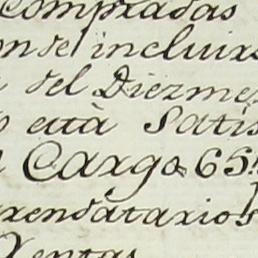 Compradas
on del incluirs
del Diezme
està Satis
Cargo 65
rrendatarios
Rentas